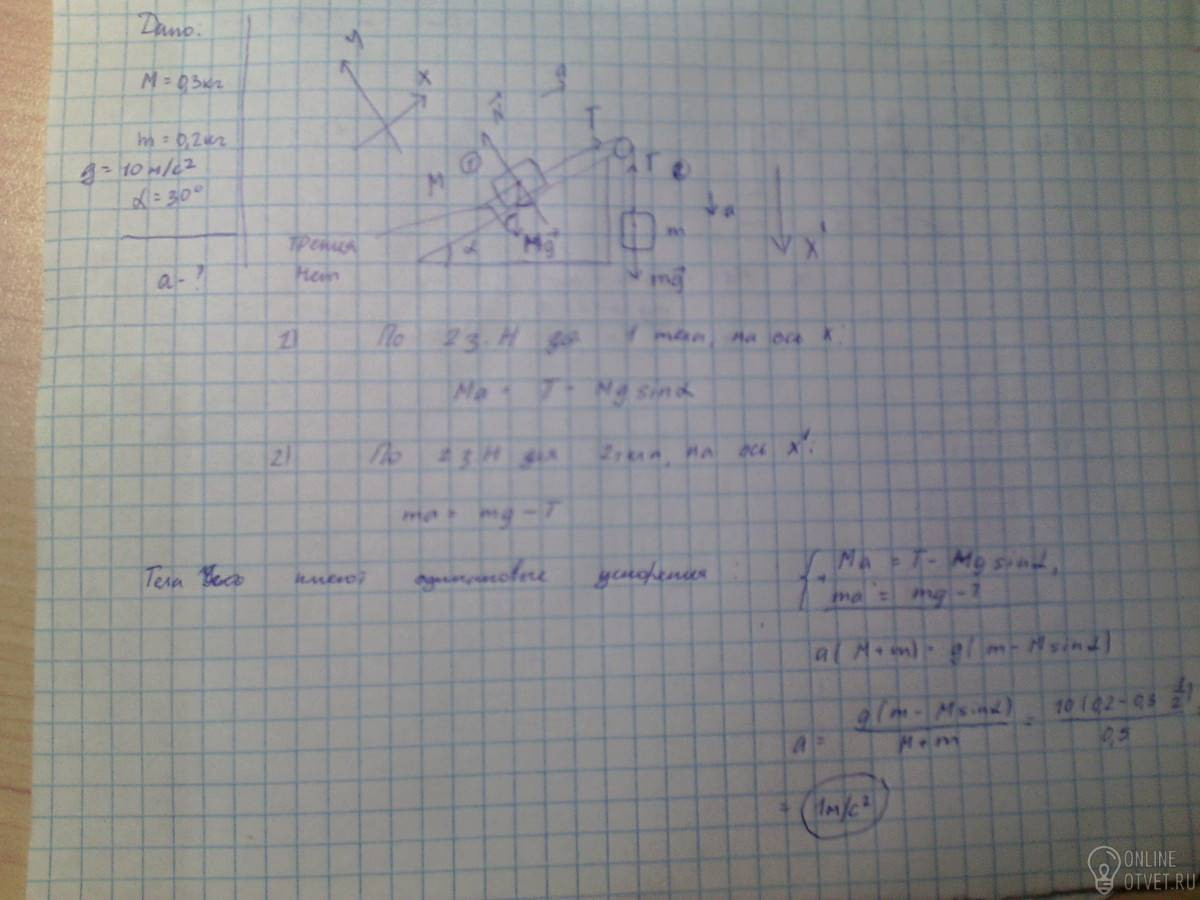 Дано:
M = 0,3 кг
m = 0,2 кг
g = 10 м/с²
α = 30°
a - ?
y
x
N
g
T
T
1
2
M
m
a
x'
α
Mg
mg
трения
нет
1) По 2 з. Н для 1 тела, на ось x:
Ma = T - Mg sinα
2) По 2 з. Н для 2 тела, на ось x':
ma = mg - T
Тела имеют одинаковые ускорения
Ma = T - Mg sinα,
ma = mg - T
a(M+m) = g(m - M sinα)
a = g(m - M sinα) / M+m = 10(0,2 - 0,3 1/2) / 0,5 =
= 1м/с²
ONLINE
OTVET.RU